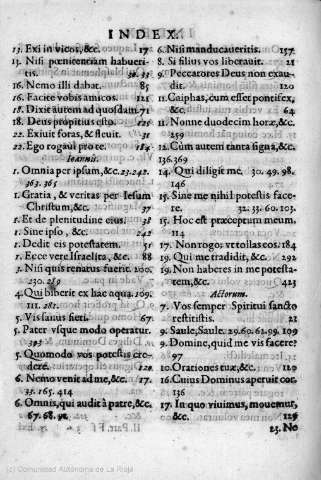 INDEX.
13. Exi in vicos, &c. 17
13. Nisi pœnitentiam habueri-
tis. 30. 33
16. Nemo illi dabat. 85
16. Facite vobis amicos. 121
18. Dixit autem ad quosdam. 71
18. Deus propitius esto. 22
22. Exiuit foras, & fleuit. 31
22. Ego rogaui pro te. 184
Ioannis.
1. Omnia per ipsum, &c. 23. 242.
363. 365
1. Gratia, & veritas per Iesum
Christum, &c. 37
1. Et de plenitudine eius. 38
1. Sine ipso, &c. 242
1. Dedit eis potestatem. 51
1. Ecce vere Israelita, &c. 88
3. Nisi quis renatus fuerit. 200.
230. 289
4. Qui biberit ex hac aqua. 109.
111. 281.
5. Vis sanus fieri. 67
5. Pater vsque modo operatur.
393
5. Quomodo vos potestis cre-
dere. 130
6. Nemo venit ad me, &c. 17.
35. 165. 414
6. Omnis, qui audit à patre, &c.
67. 68.
6. Nisi manducaueritis. 157
8. Si filius vos liberauit. 21
9. Peccatores Deus non exau-
dit. 22
11. Caiphas, cum esset pontifex,
&c. 64
11. Nonne duodecim horæ, &c.
259
12. Cum autem tanta signa, &c.
136. 369
14. Qui diligit me. 30. 49. 98.
146
15. Sine me nihil potestis face-
re. 32. 33. 60. 103.
15. Hoc est præceptum meum.
114
17. Non rogo vt tollas eos. 184
19. Qui me tradidit, &c. 292
19. Non haberes in me potesta-
tem, &c. 423
Actorum.
7. Vos semper Spiritui sancto
restitistis. 21
9. Saule, Saule. 29. 60. 62. 99. 109
9. Domine, quid me vis facere?
97
10. Orationes tuæ, &c. 129
16. Cuius Dominus aperuit cor.
136
17. In quo viuimus, mouemur,
&c. 129
23. No
(c) Comunidad Autónoma de La Rioja